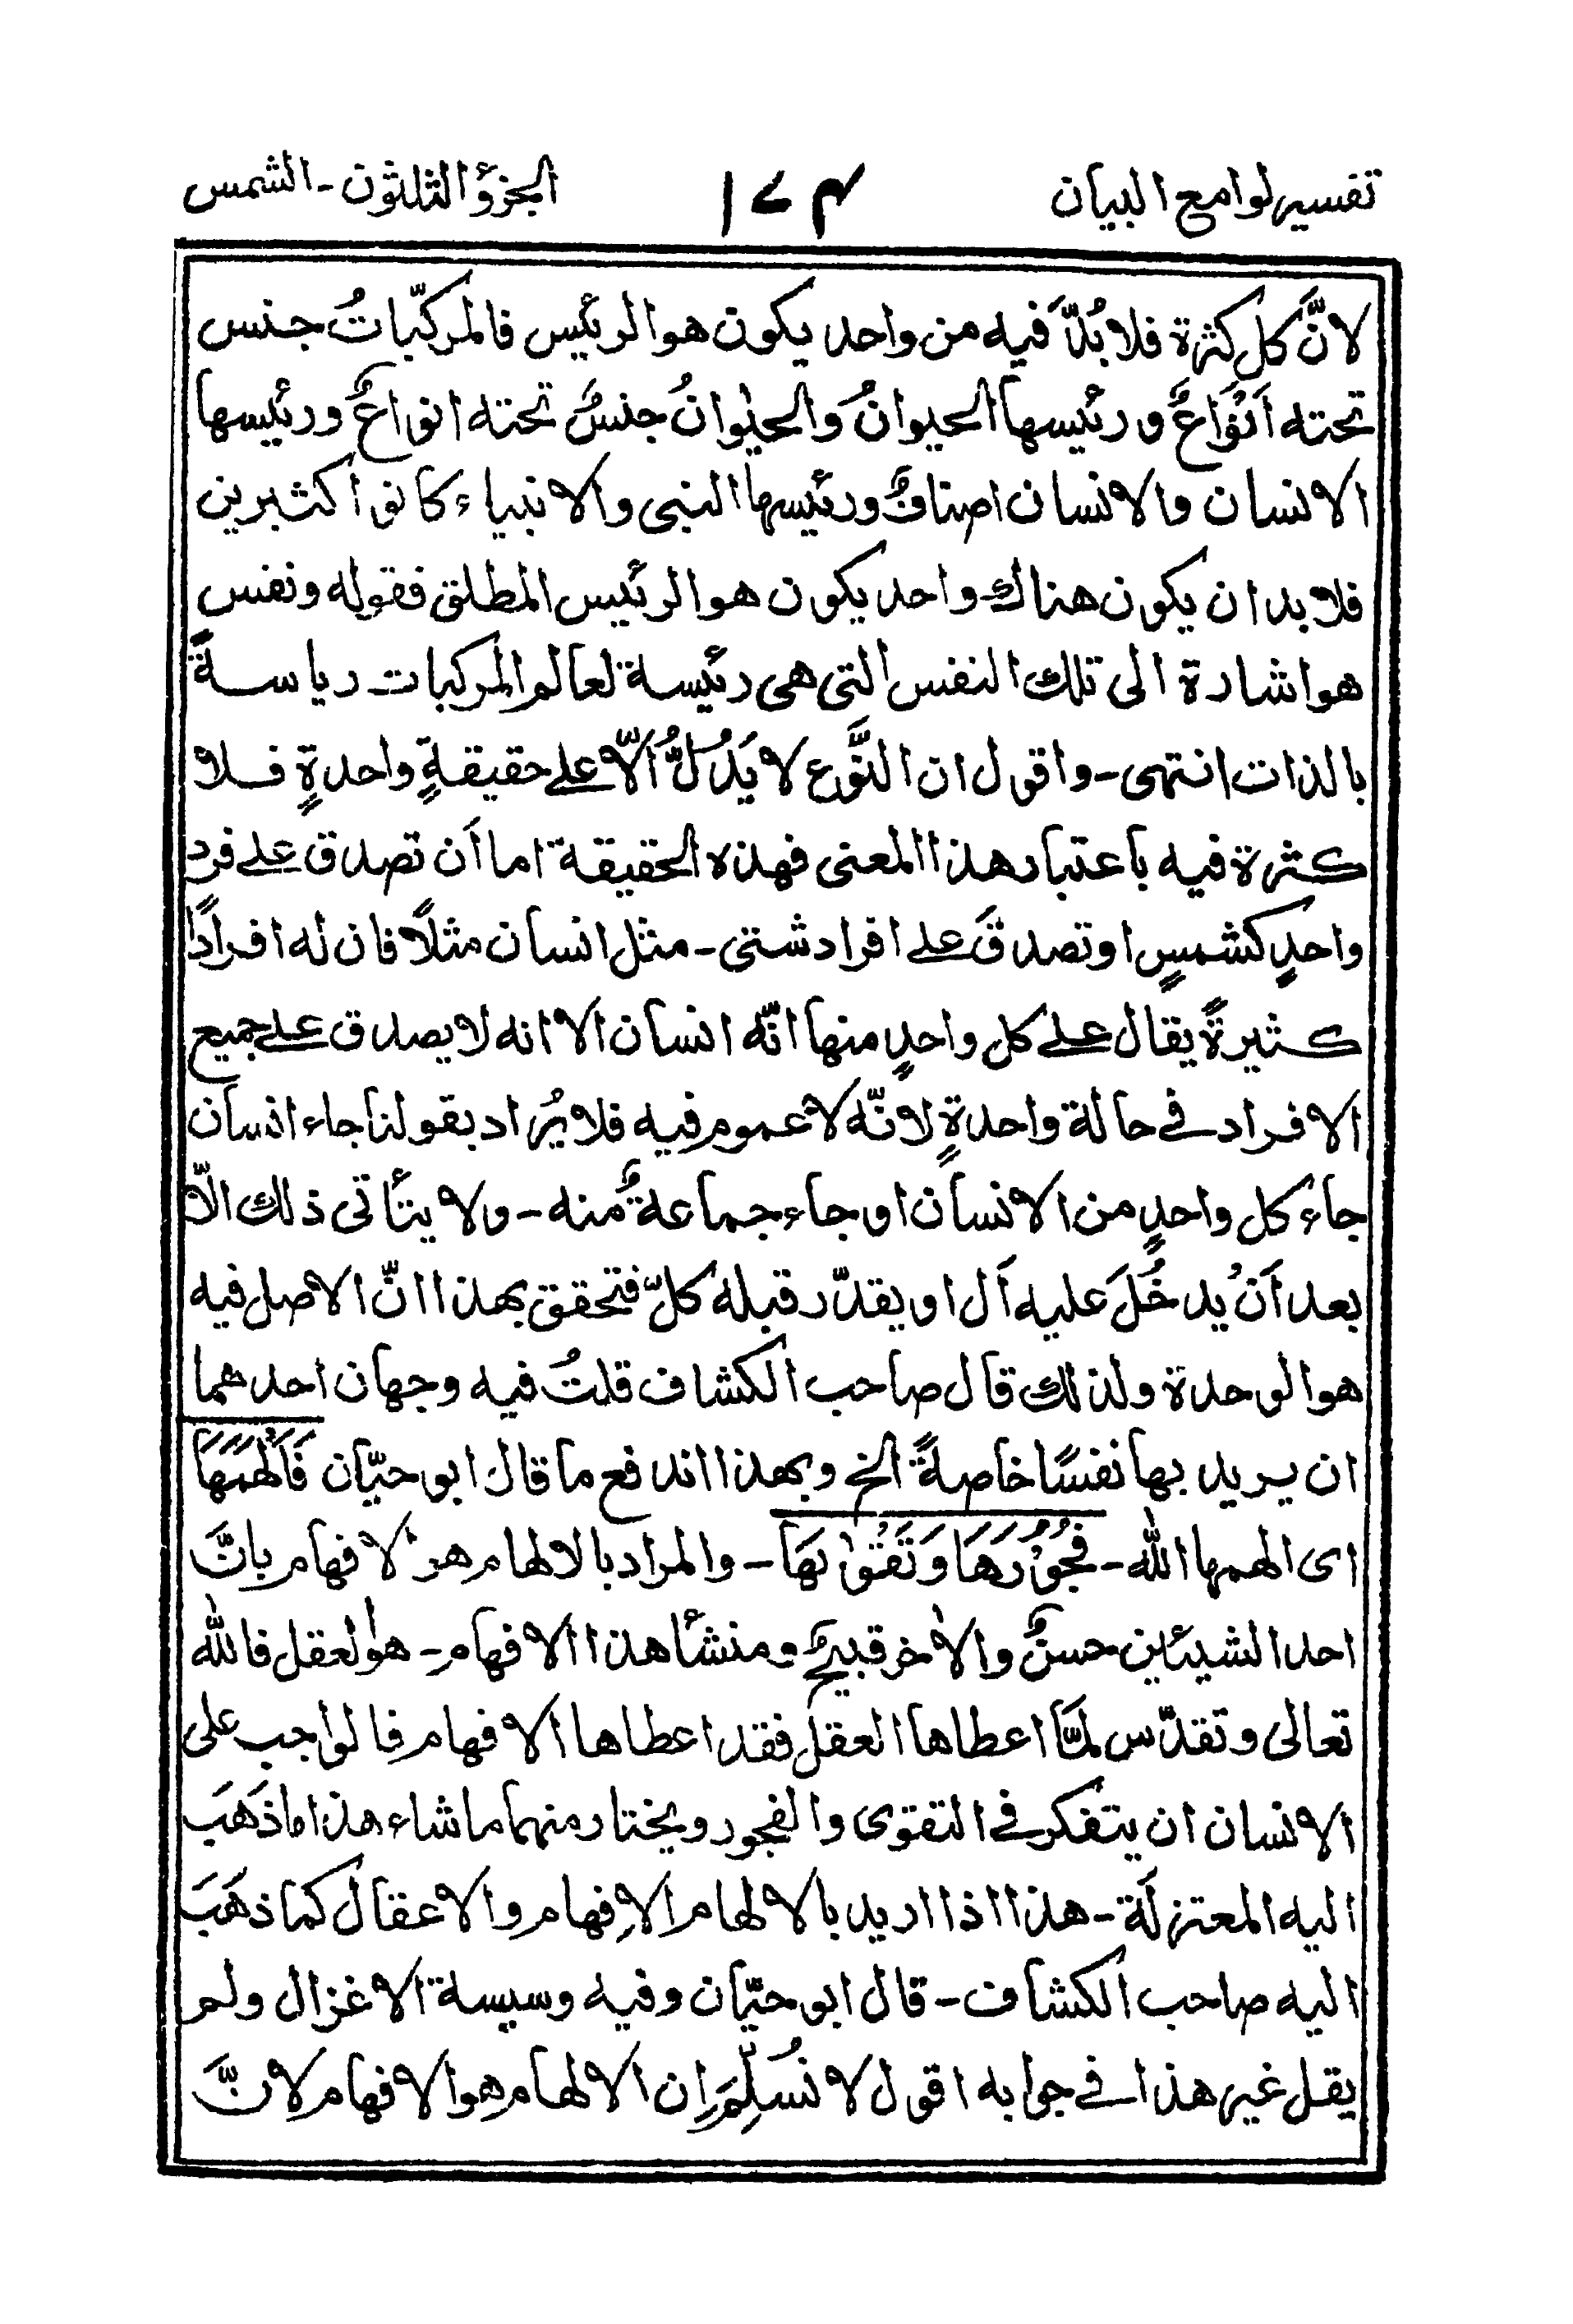 تفسير لوامع البيان ١٧٣ الجزؤ الثلثون - الشمس
لانَّ كل كثرة فلا بُدَّ فيه من واحد يكون هو الرئيس فالمركّباتُ جنس
تحته اَنْوَاعٌ ورئيسها الحيوانُ والحيٰوانُ جنسٌ تحته انواعٌ ورئيسها
الانسان والانسان اصنافٌ ورئيسها النبى والانبياء كانوا كثيرين
فلا بد ان يكون هناك واحد يكون هو الرئيس المطلق فقوله ونفس
هو اشارة الى تلك النفس التى هى رئيسة لعالم المركبات رياسةً
بالذات انتهى - واقول ان النَّوع لا يَدُلُّ اَلّا على حقيقةٍ واحدةٍ فلا
كثرة فيه باعتبار هذا المعنى فهذه الحقيقة اما اَن تصدق على فرد
واحدٍ كشمسٍ او تصدقَ على افراد شتى - مثل انسان مثلاً فان له افرادًا
كثيرةً يقال على كل واحدٍ منها انّه انسان الا انه لا يصدق على جميع
الافراد فى حالة واحدةٍ لانّه لا عموم فيه فلا يُراد بقولنا جاء انسان
جاء كل واحدٍ من الانسان او جاء جماعةٌ منه - ولا يتأتى ذلك الّا
بعد اَنْ يدخُلَ عليه اَل او يقدّر قبله كلّ فتحقق بهذا انّ الاصل فيه
هو الوحدة ولذلك قال صاحب الكشاف قلتُ فيه وجهان احدهما
ان يريد بها نفسًا خاصةً الخ وبهذا اندفع ما قال ابو حيّان فَاَلْهَمَهَا
اى الهمها الله - فُجُوْرَهَا وَتَقْوٰىهَا - والمراد بالالهام هو الافهام بانَّ
احد الشيئين حسنٌ والاٰخر قبيحٌ ومنشأ هذا الافهام - هو العقل فالله
تعالى وتقدّس لمّا اعطاها العقل فقد اعطاها الافهام فالواجب على
الانسان ان يتفكر فى التقوى والفجور ويختار منهما ما شاء هذا ما ذهَبَ
اليه المعتزلة - هذا اذا اريد بالالهام الاِفهام والاعقال كما ذهَبَ
اليه صاحب الكشاف - قال ابو حيّان وفيه وسيسة الاغزال ولم
يقل غير هذا فى جوابه اقول لا نُسَلِّمُ اِن الالهام هو الافهام لانَّ